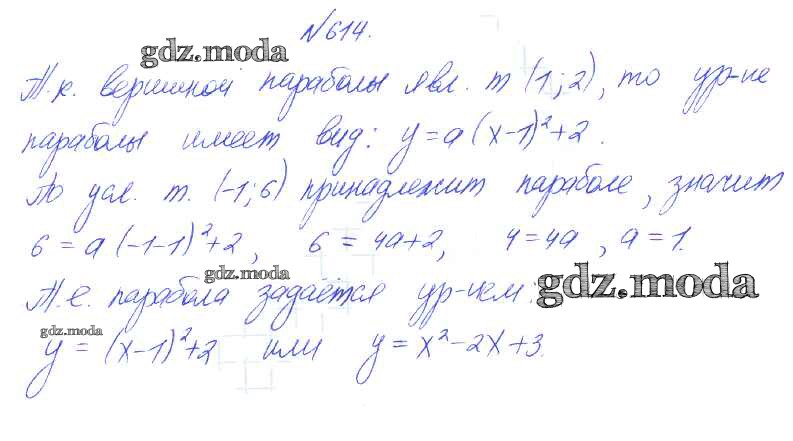 №614.
gdz.moda
Т.к. вершиной параболы явл. т (1;2), то ур-ие
параболы имеет вид: y=a(x-1)²+2.
По усл. т. (-1;6) принадлежит параболе, значит
6=a(-1-1)²+2, 6=4a+2, 4=4a, a=1.
gdz.moda
Т.е. парабола задаётся ур-ием: gdz.moda
gdz.moda
y=(x-1)²+2 или y=x²-2x+3.